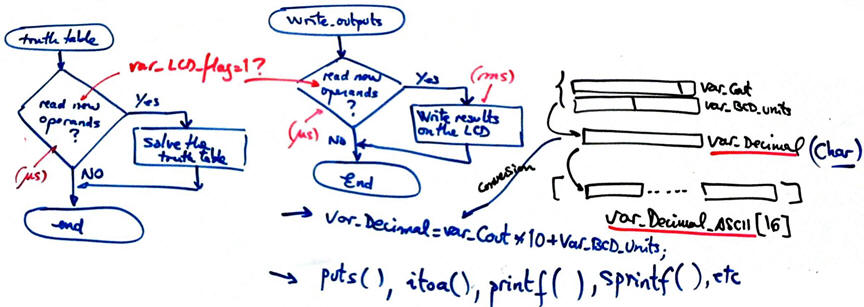 truth table
read new
operands
?
Yes
Solve the
truth table
(µs)
NO
end
var_LCD_flag=1?
Write_outputs
read new
operands
?
Yes
(ms)
Write results
on the LCD
(µs)
NO
End
var_Cout
var_BCD_units
var_Decimal (char)
conversion
[ ...... ]
var_Decimal_ASCII [16]
→ Var_Decimal=var_Cout*10+Var_BCD_Units;
→ puts(), itoa(), printf(), sprintf(), etc